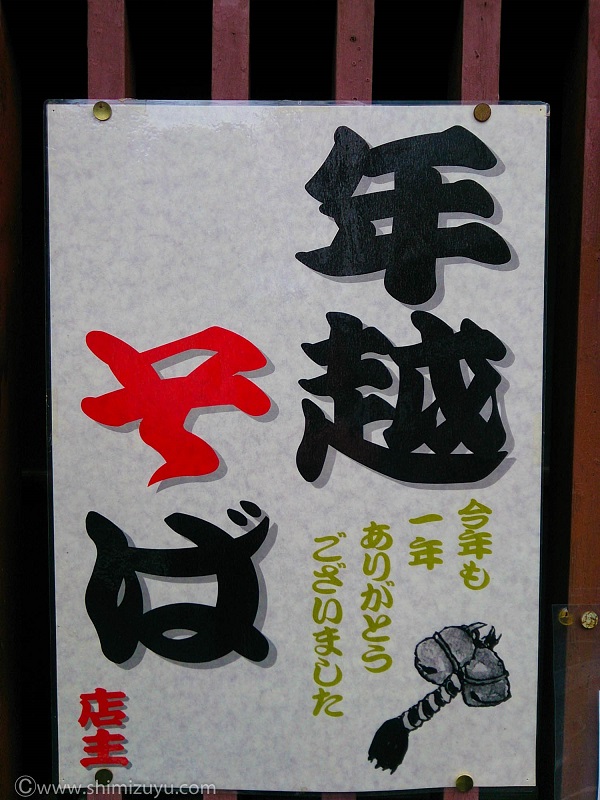 年越
そば
今年も
一年
ありがとう
ございました
店主
©www.shimizuyu.com